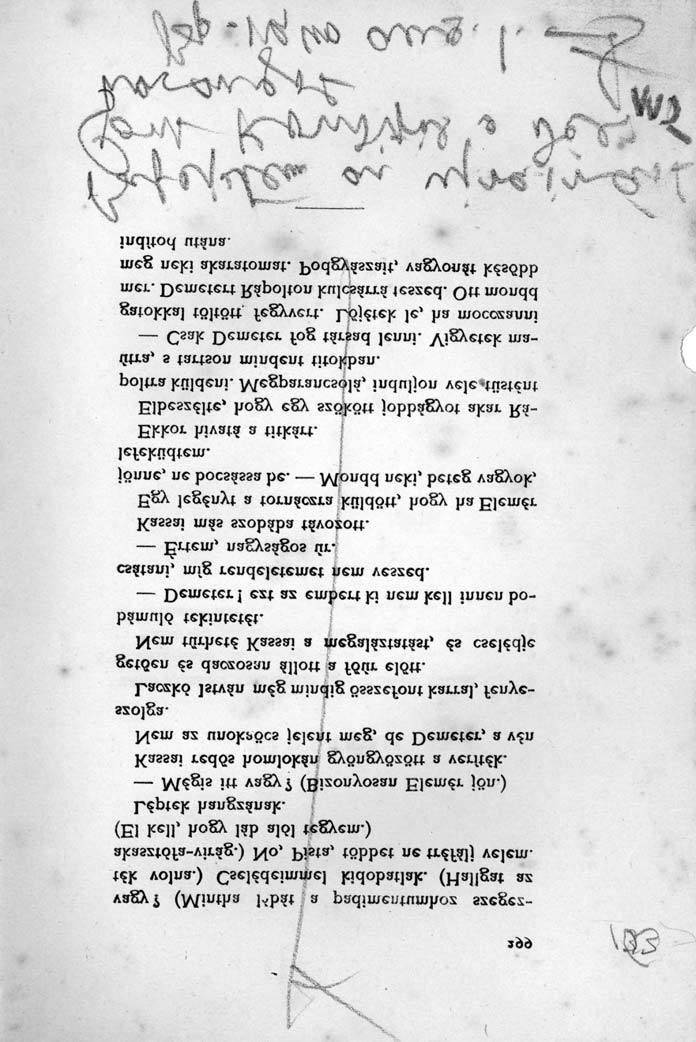 299
vagy? (Mintha lábát a padimentumhoz szegez-
ték volna.) Cselédeimmel kidobatlak. (Hallgat az
akasztófa-virág.) No, Pista, többet ne tréfálj velem.
(El kell, hogy láb alól tegyem.)
Léptek hangzának.
— Mégis itt vagy? (Bizonyosan Elemér jön.)
Kassai redős homlokán gyöngyözött a veríték.
Nem az unokaöcs jelent meg, de Demeter, a vén
szolga.
Laczkó István még mindig összefont karral, fenye-
getően és daczosan állott a főúr előtt.
Nem tűrheté Kassai a megaláztatást, és cselédje
bámuló tekintetét.
— Demeter! ezt az embert ki nem kell innen bo-
csátani, míg rendeletemet nem veszed.
— Értem, nagyságos úr.
Kassai más szobába távozott.
Egy legényt a tornáczra küldött, hogy ha Elemér
jönne, ne bocsássa be. — Mondd neki, beteg vagyok,
lefeküdtem.
Ekkor hivatá a titkárt.
Elbeszélte, hogy egy szökött jobbágyot akar Rá-
poltra küldeni. Megparancsolá, induljon vele tüstént
útra, s tartson mindent titokban.
— Csak Demeter fog társad lenni. Vigyetek ma-
gatokkal töltött fegyvert. Lőjétek le, ha moczczanni
mer. Demetert Rápolton kulcsárrá teszed. Ott mondd
meg neki akaratomat. Podgyászait, vagyonát később
indítod utána.